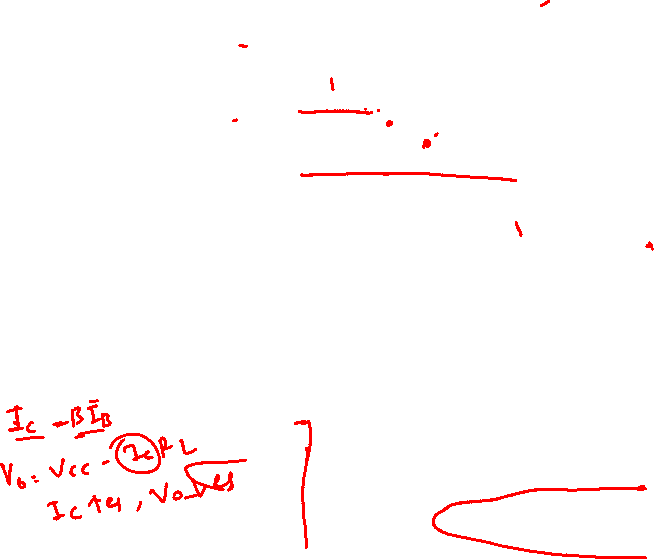 I_C = βI_B
V_o = V_CC - I_C R_L
I_C ↑es, V_o ↓es